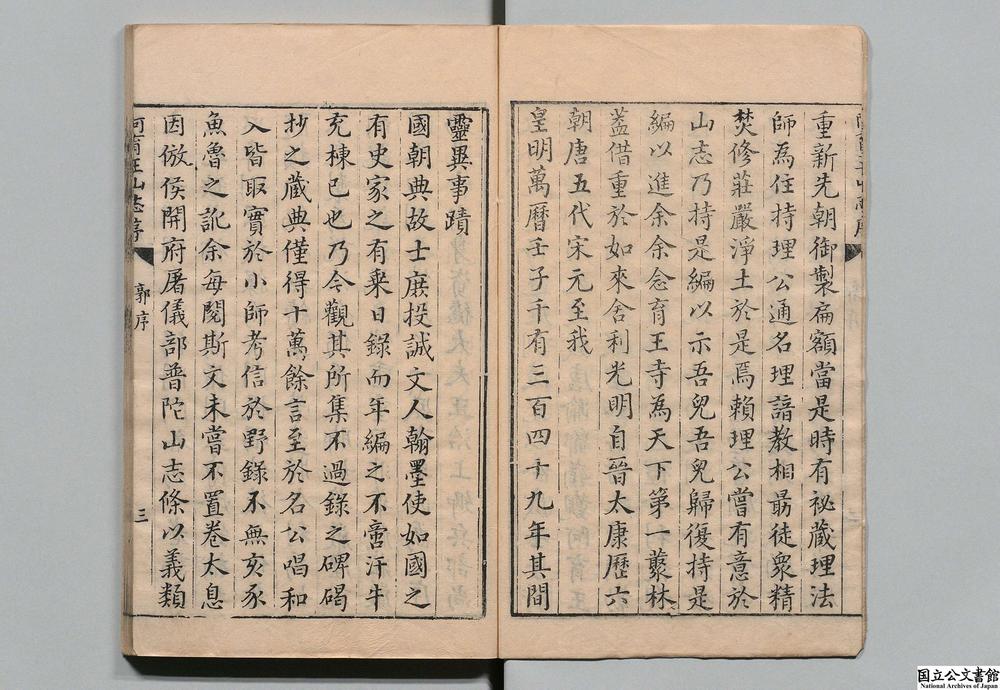 重新先朝御製扁額當是時有祕藏理法
師為住持理公通名理諳教相朂徒衆精
焚修莊嚴淨土於是焉賴理公嘗有意於
山志乃持是編以示吾兒吾兒歸復持是
編以進余余念育王寺為天下第一藂林
葢借重於如來舍利光明自晉太康歷六
朝唐五代宋元至我
皇明萬曆壬子千有三百四十九年其間
靈異事蹟
國朝典故士庶投誠文人翰墨使如國之
有史家之有乘日錄而年編之不啻汗牛
充棟已也乃今觀其所集不過錄之碑碣
抄之藏典僅得十萬餘言至於名公唱和
入皆取實於小師考信於野錄不無亥豕
魚魯之訛余每閱斯文未嘗不置卷太息
因倣侯開府屠儀部普陀山志條以義類
阿育王山志序
郭序
三
国立公文書館
National Archives of Japan